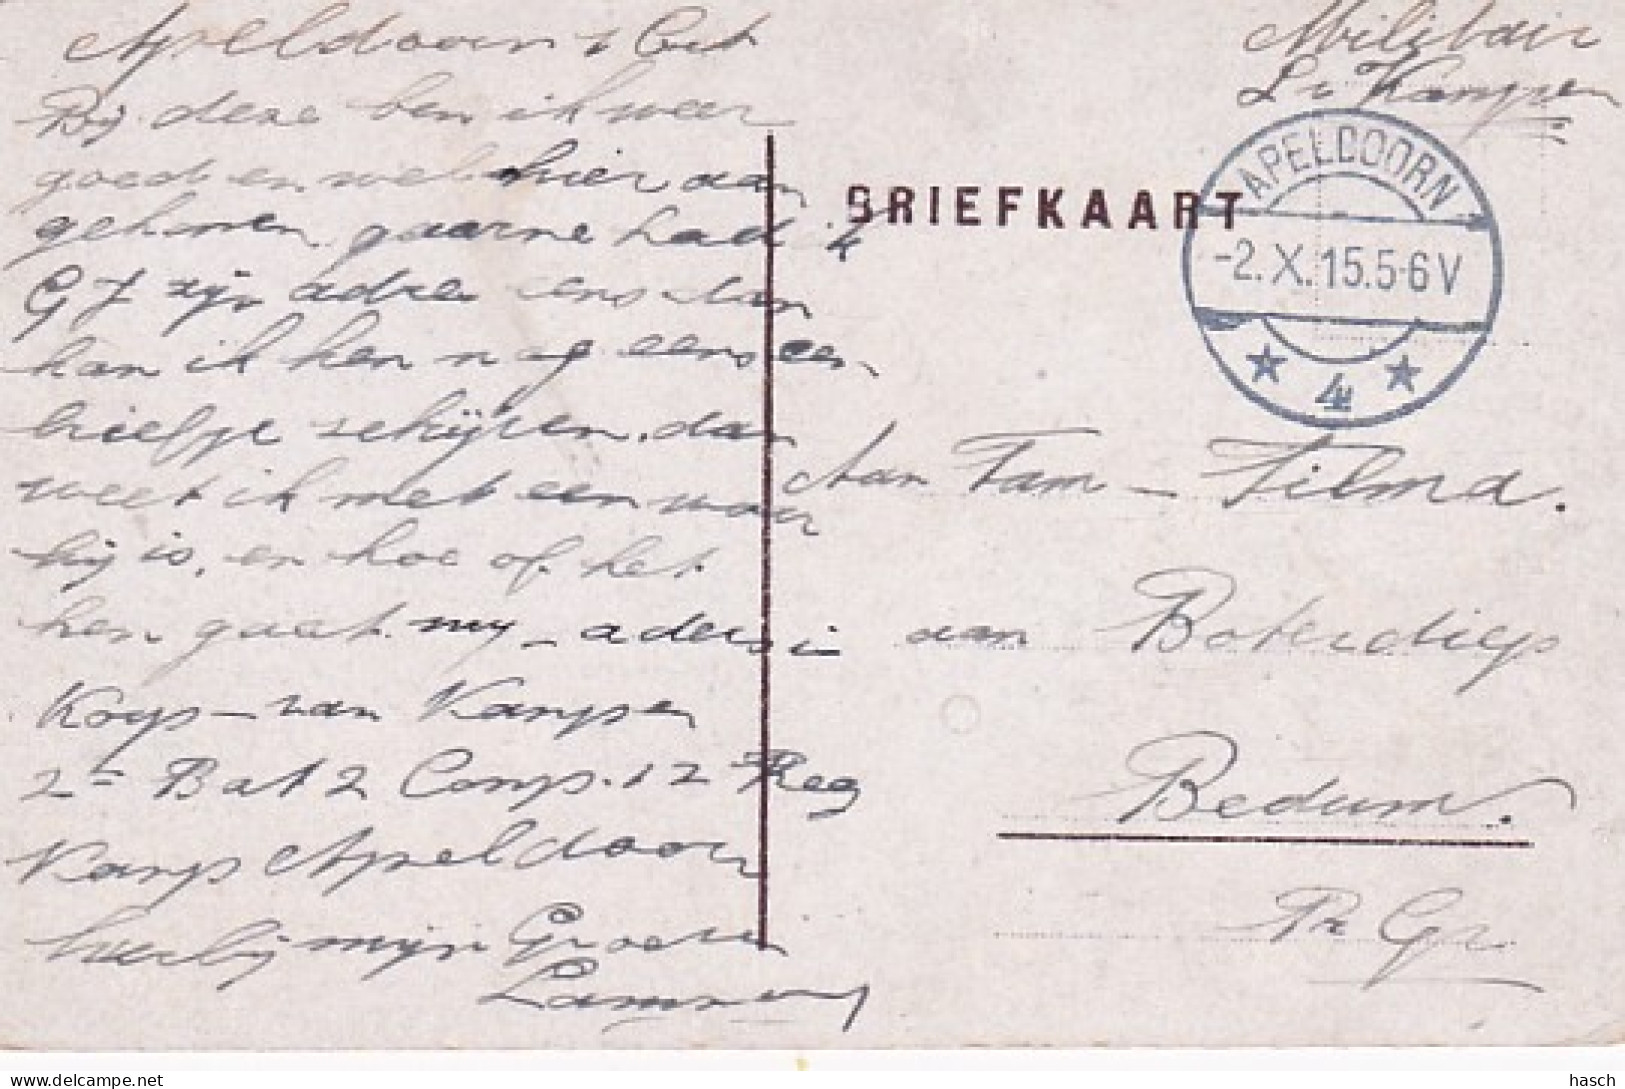 Apeldoorn 1 Oct
Bij deze ben ik weer
goed en wel hier aan
gekomen. gaarne had ik
G J zijn adres eens dan
kan ik hem nog eens een
briefje schijven. dan
weet ik met een waar
hij is, en hoe of het
hem gaat. mijn aders is
Korp - van Kampen
2e Bat 2 Comp. 12 Reg
Kamp Apeldoorn
hierbij mijn Groeten
Militair
L v Kampen
BRIEFKAART
APELDOORN
-2.X.15.5-6V
4
Aan Fam - Tilma.
aan Boterdiep
Bedum.
Pr Gr
hasch